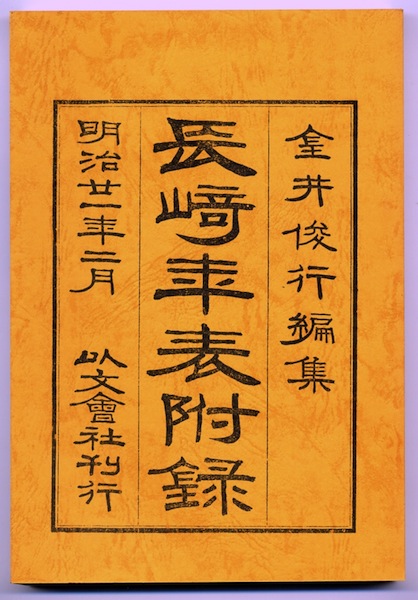 金井俊行編集
長﨑年表附録
明治廿一年二月 以文會社刊行